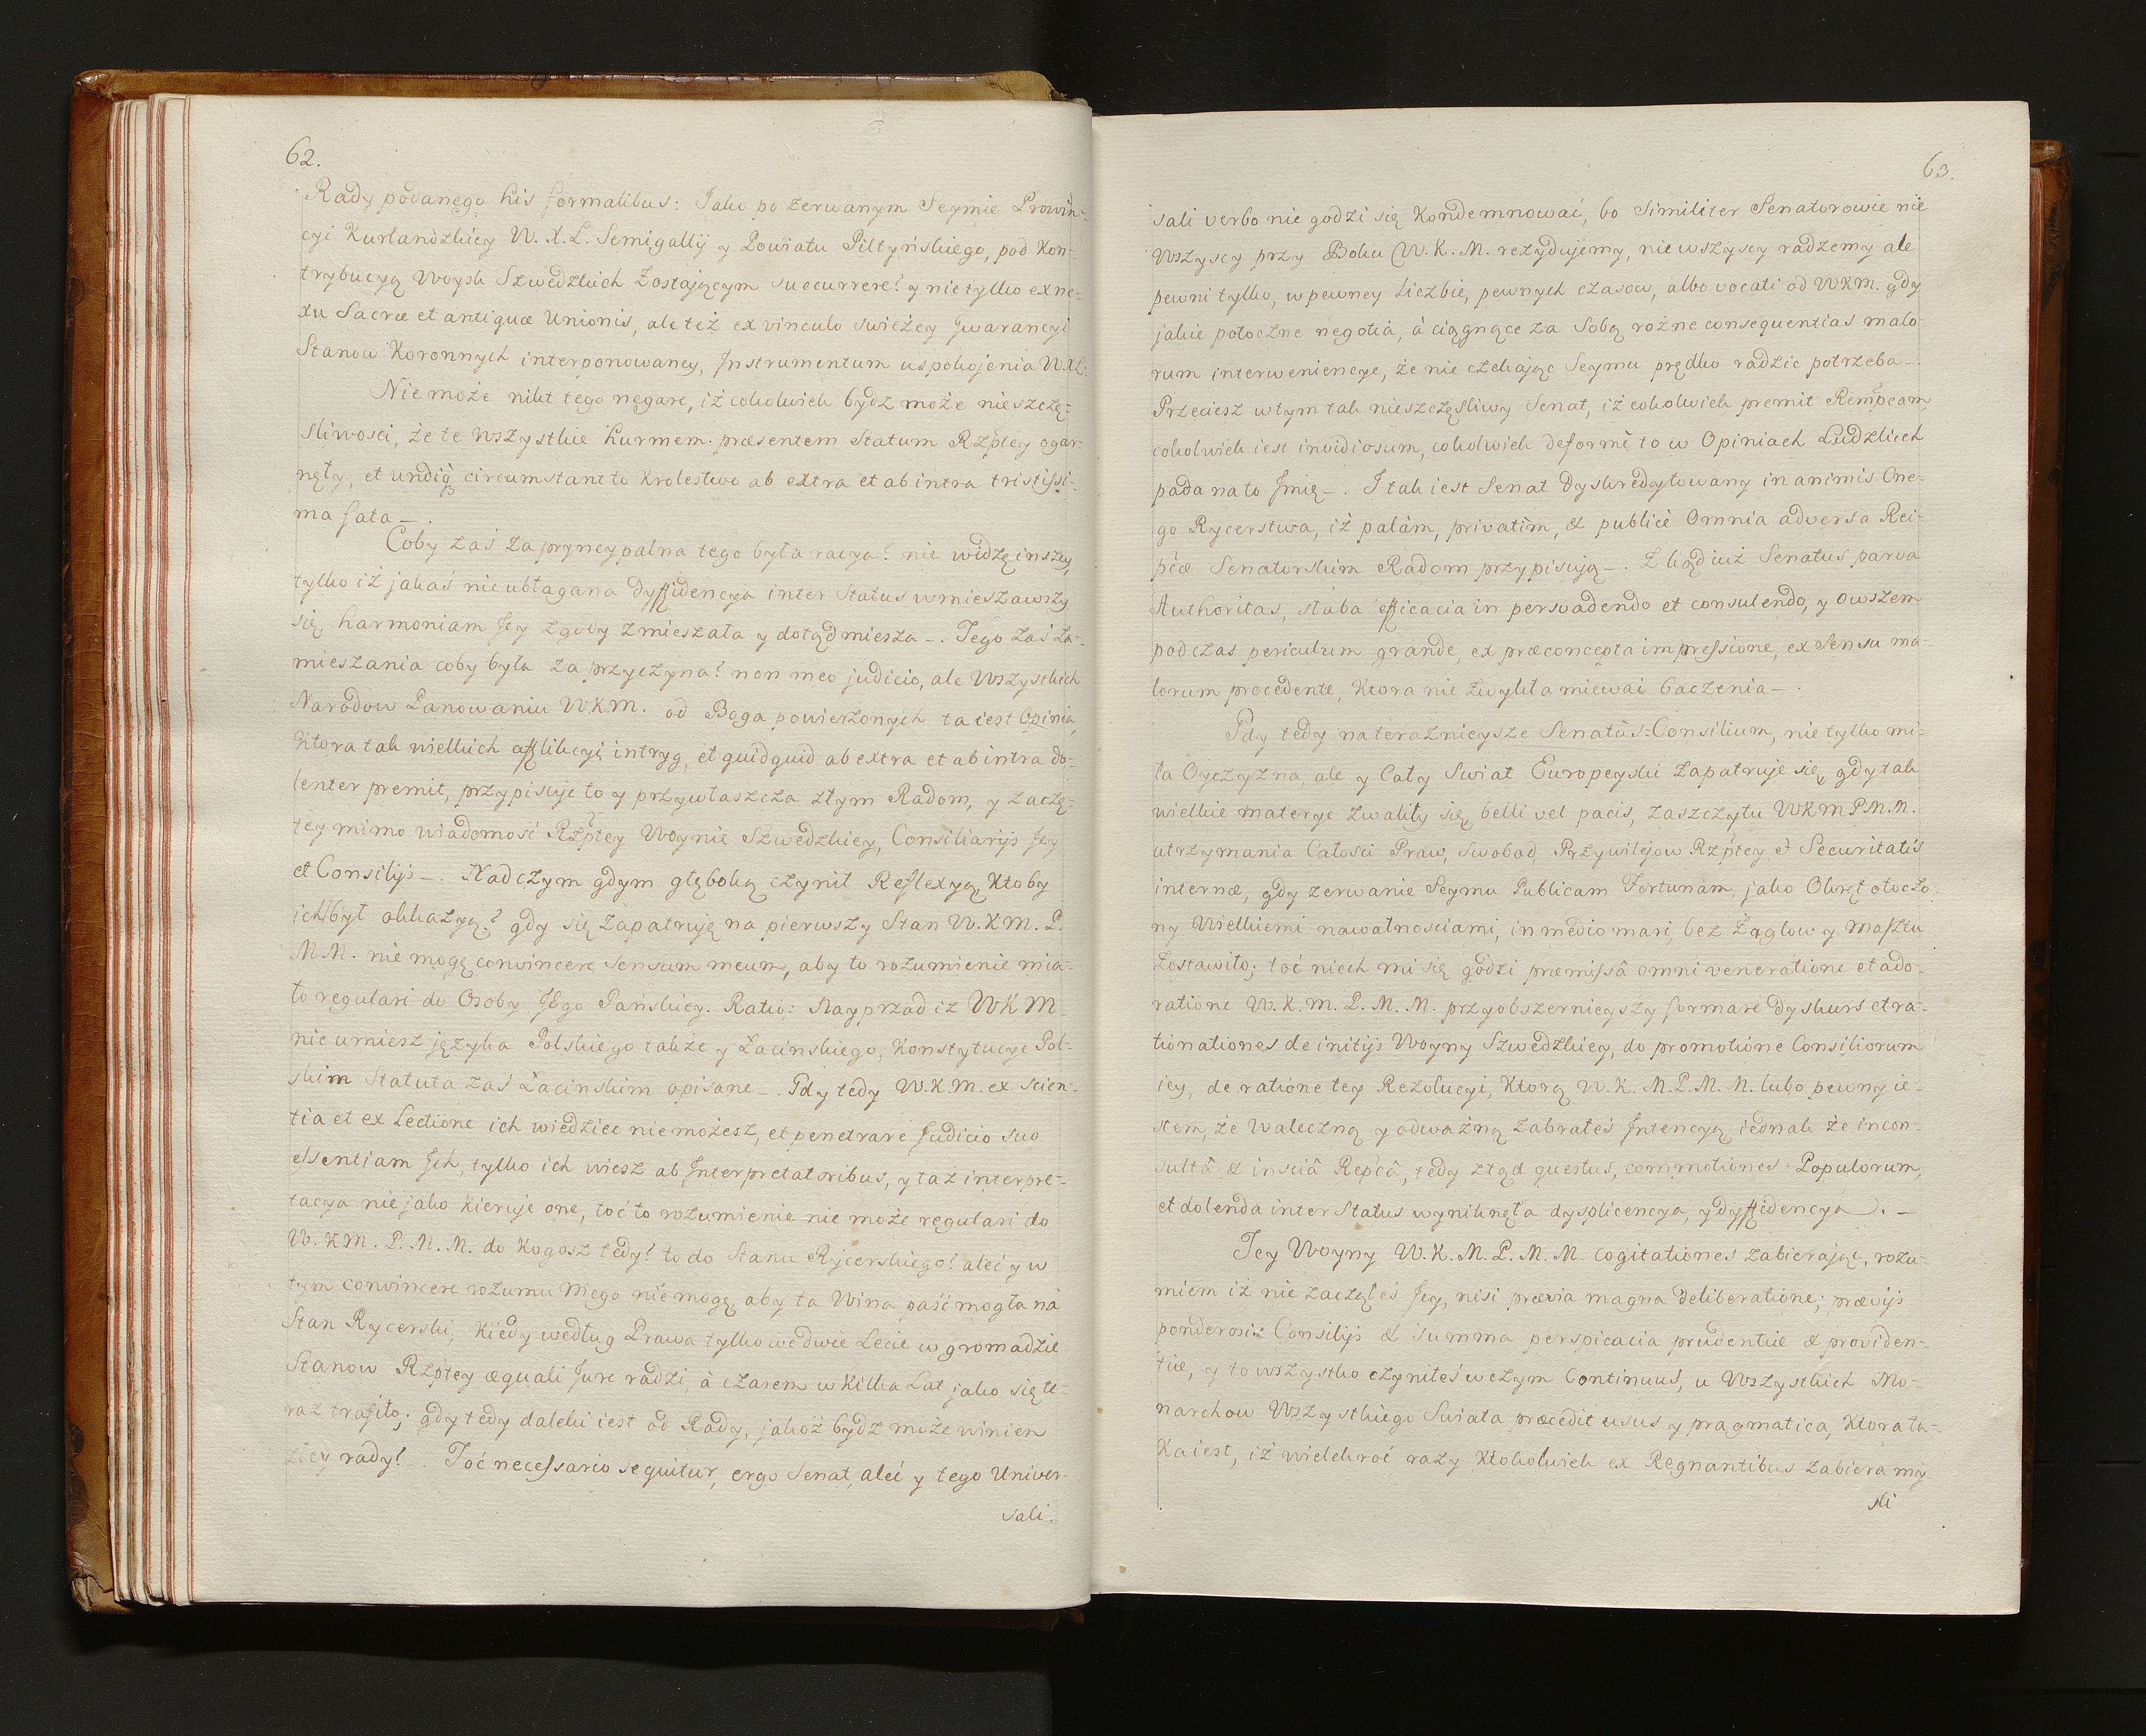 62.
Rady podanego his formalibus: Jako po zerwanym Seymie Prowin-
cyi Kurlandzkiey W. X. L. Semigallij y Powiatu Piltyńskiego, pod Kon-
trybucyą Woysk Szwedzkich Zostającym succurrere? y nie tylko ex ne-
xu Sacræ et antiquæ Unionis, ale też ex vinculo swieżey Gwarancyi
Stanow Koronnych interponowaney, Instrumentum uspokojenia W.X.L.
Nie może nikt tego negare, iż cokolwiek bydz może nieszczę-
sliwosci, że te wszystkie hurmem præsentem Statum Rzptey ogar-
nęły, et undiq circumstant to Krolestwo ab extra et ab intra tristissi-
ma fata –.
Coby zaś za pryncypalna tego była racya? nie widzę inszey,
tylko iż jakaś nieubłagana dyffidencya inter Status wmieszawszy
się, harmoniam Jey zgody zmieszała y dotąd miesza –. Tego zaś za-
mieszania coby była za przyczyna? non meo judicio, ale Wszystkich
Narodow Panowaniu WKM. od Boga powierzonych ta iest Opinia,
Ktora tak wielkich afflikcyi intryg, et quidquid ab extra et ab intra do-
lenter premit, przypisuje to y przywłaszcza złym Radom, y zaczę-
tey mimo wiadomość Rzptey Woynie Szwedzkiey, Consiliarijs Jey
et Consilijs –. Nad czym gdym głęboką czynił Reflexyą, Ktoby
ich był okkazyą? gdy się zapatruję na pierwszy Stan W.KM. P.
M M. nie mogę convincere Sensum meum, aby to rozumienie mia-
ło regulari do Osoby Jego Pańskiey. Ratio: Nayprzod iz WKM
nie umiesz języka Polskiego także y Łacinskiego, Konstytucye Pol-
skim Statuta zaś Łacinskim opisane –. Gdy tedy W.K.M. ex scien-
tia et ex Lectione ich wiedziec nie możesz, et penetrare Judicio suo
essentiam Jch, tylko ich wiesz ab Interpretatoribus, y taż interpre-
tacya nie jako Kieruje one, toć to rozumienie nie może regulari do
W.KM. P. M. M. do Kogosz tedy? to do Stanu Rycerskiego? aleć y w
tym convincere rozumu mego nie mogę, aby ta Wina paść mogła na
Stan Rycerski, Kiedy według Prawa tylko we dwie Lecie w gromadzie
Stanow Rzptey æquali Jure radzi, à czasem w Kilka Lat jako się te-
raz trafiło; gdy tedy daleki iest od Rady, jakoż bydz może winien
złey rady? –. Toć necessario sequitur, ergo Senat, aleć y tego Univer-
sali.
63.
sali verbo nie godzi się Kondemnować, bo Similiter Senatorowie nie
Wszyscy przy Boku W. K. M. rezydujemy, nie wszyscy radzemy ale
pewni tylko, w pewney Liczbie, pewnych czasow, albo vocati od WKM. gdy
jakie potoczne negotia, à ciągnące za Sobą rożne consequentias malo-
rum interweniencye, że nie czekając Seymu prędko radzic potrzeba –.
Przeciesz w tym tak nieszczęsliwy Senat, iż cokolwiek premit Rempcam
cokolwiek iest invidiosum, cokolwiek deformè to w Opiniach Ludzkich
pada na to Imię –. I tak iest Senat dyskredytowany in animis One-
go Rycerstwa, iż palàm, privatìm, & publicè Omnia adversa Rei-
pcæ Senatorskim Radom przypisują –. Zkąd iuż Senatus parva
Authoritas, słaba efficacia in persvadendo et consulendo, y owszem
podczas periculum grande, ex præconcepta impressione, ex Sensu ma-
lorum procedente, Ktora nie zwykła miewać baczenia –.
Gdy tedy na teraznieysze Senatûs-Consilium, nie tylko mi-
ła Oyczyzna, ale y Cały Swiat Europeyski zapatruje się, gdy tak
wielkie materye zwaliły się, belli vel pacis, zaszczytu WKM P.M.M.
utrzymania Całosci Praw, Swobod, Przywilejow Rzptey & Securitatis
internæ, gdy zerwanie Seymu Publicam Fortunam, jako Okręt otoczo-
ny Wielkiemi nawalnosciami, in medio mari, bez Żaglow y Masztu
Zostawiło; toć niech mi się godzi præmissâ omni veneratione et ado-
ratione W. K. M. P. M. M. przyobszernieyszy formare dyskurs et ra-
tionationes de initijs Woyny Szwedzkiey, do promotione Consiliorum
iey, de ratione tey Rezolucyi, Ktorą W. K. M. P. M. M. lubo pewny ie-
stem, że waleczną y odważną zabrałeś Intencyą, iednak że incon-
sultâ & insciâ Repcâ, tedy ztąd questus, commotiones Populorum,
et dolenda inter Status wyniknęła dysplicencya, y dyffidencya. –
Tey Woyny W. K. M. P. M. M. cogitationes zabierając, rozu-
miem iż nie zacząłeś Jey, nisi prævia magna deliberatione; prævijs
ponderosis Consilijs & summa perspicacia prudentiæ & providen-
tiæ, y to wszystko czyniłeś w czym Continuus, u Wszystkich Mo-
narchow Wszystkiego Swiata præcedit usus y pragmatica, Ktora ta-
ka iest, iż wielekroć razy Ktokolwiek ex Regnantibus zabiera my-
sli